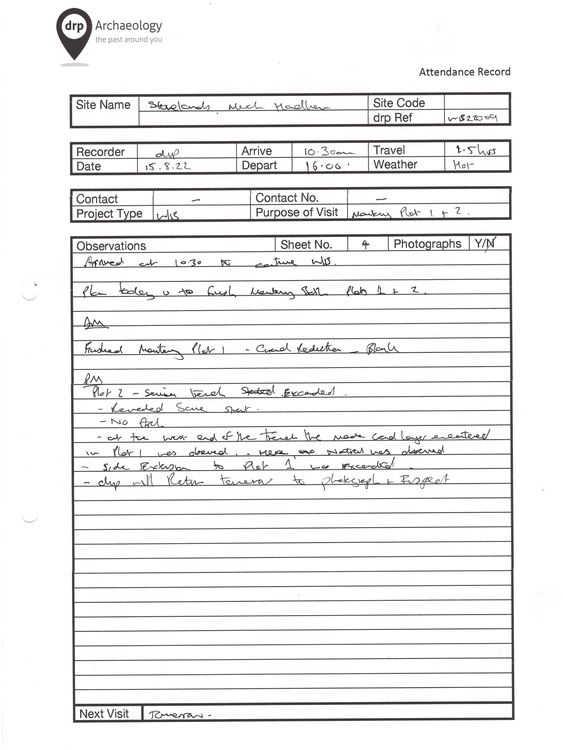 drp Archaeology
the past around you
Attendance Record
Site Name Much Hadham Site Code
drp Ref WB22009
Recorder drp Arrive 10.30am Travel 2.5hrs
Date 15.8.22 Depart 16.00 Weather Hot
Contact – Contact No. –
Project Type W/B Purpose of Visit Monitoring Plot 1 + 2.
Observations Sheet No. 4 Photographs Y/N
Arrived at 10.30 to continue W/B.
Plan today is to finish Monitoring Both Plots 1 + 2.
AM
Finished Monitoring Plot 1 - Ground Reduction - Blank
PM
Plot 2 - Service Trench Excavated.
- Revealed Same
- No Arch.
- at the west end of the Trench the made Ground layer encountered
in Plot 1 was observed.. Here no Natural was observed
- Side Extension to Plot 1 was Excavated.
- drp will Return Tomorrow to photograph + Inspect
Next Visit Tomorrow.